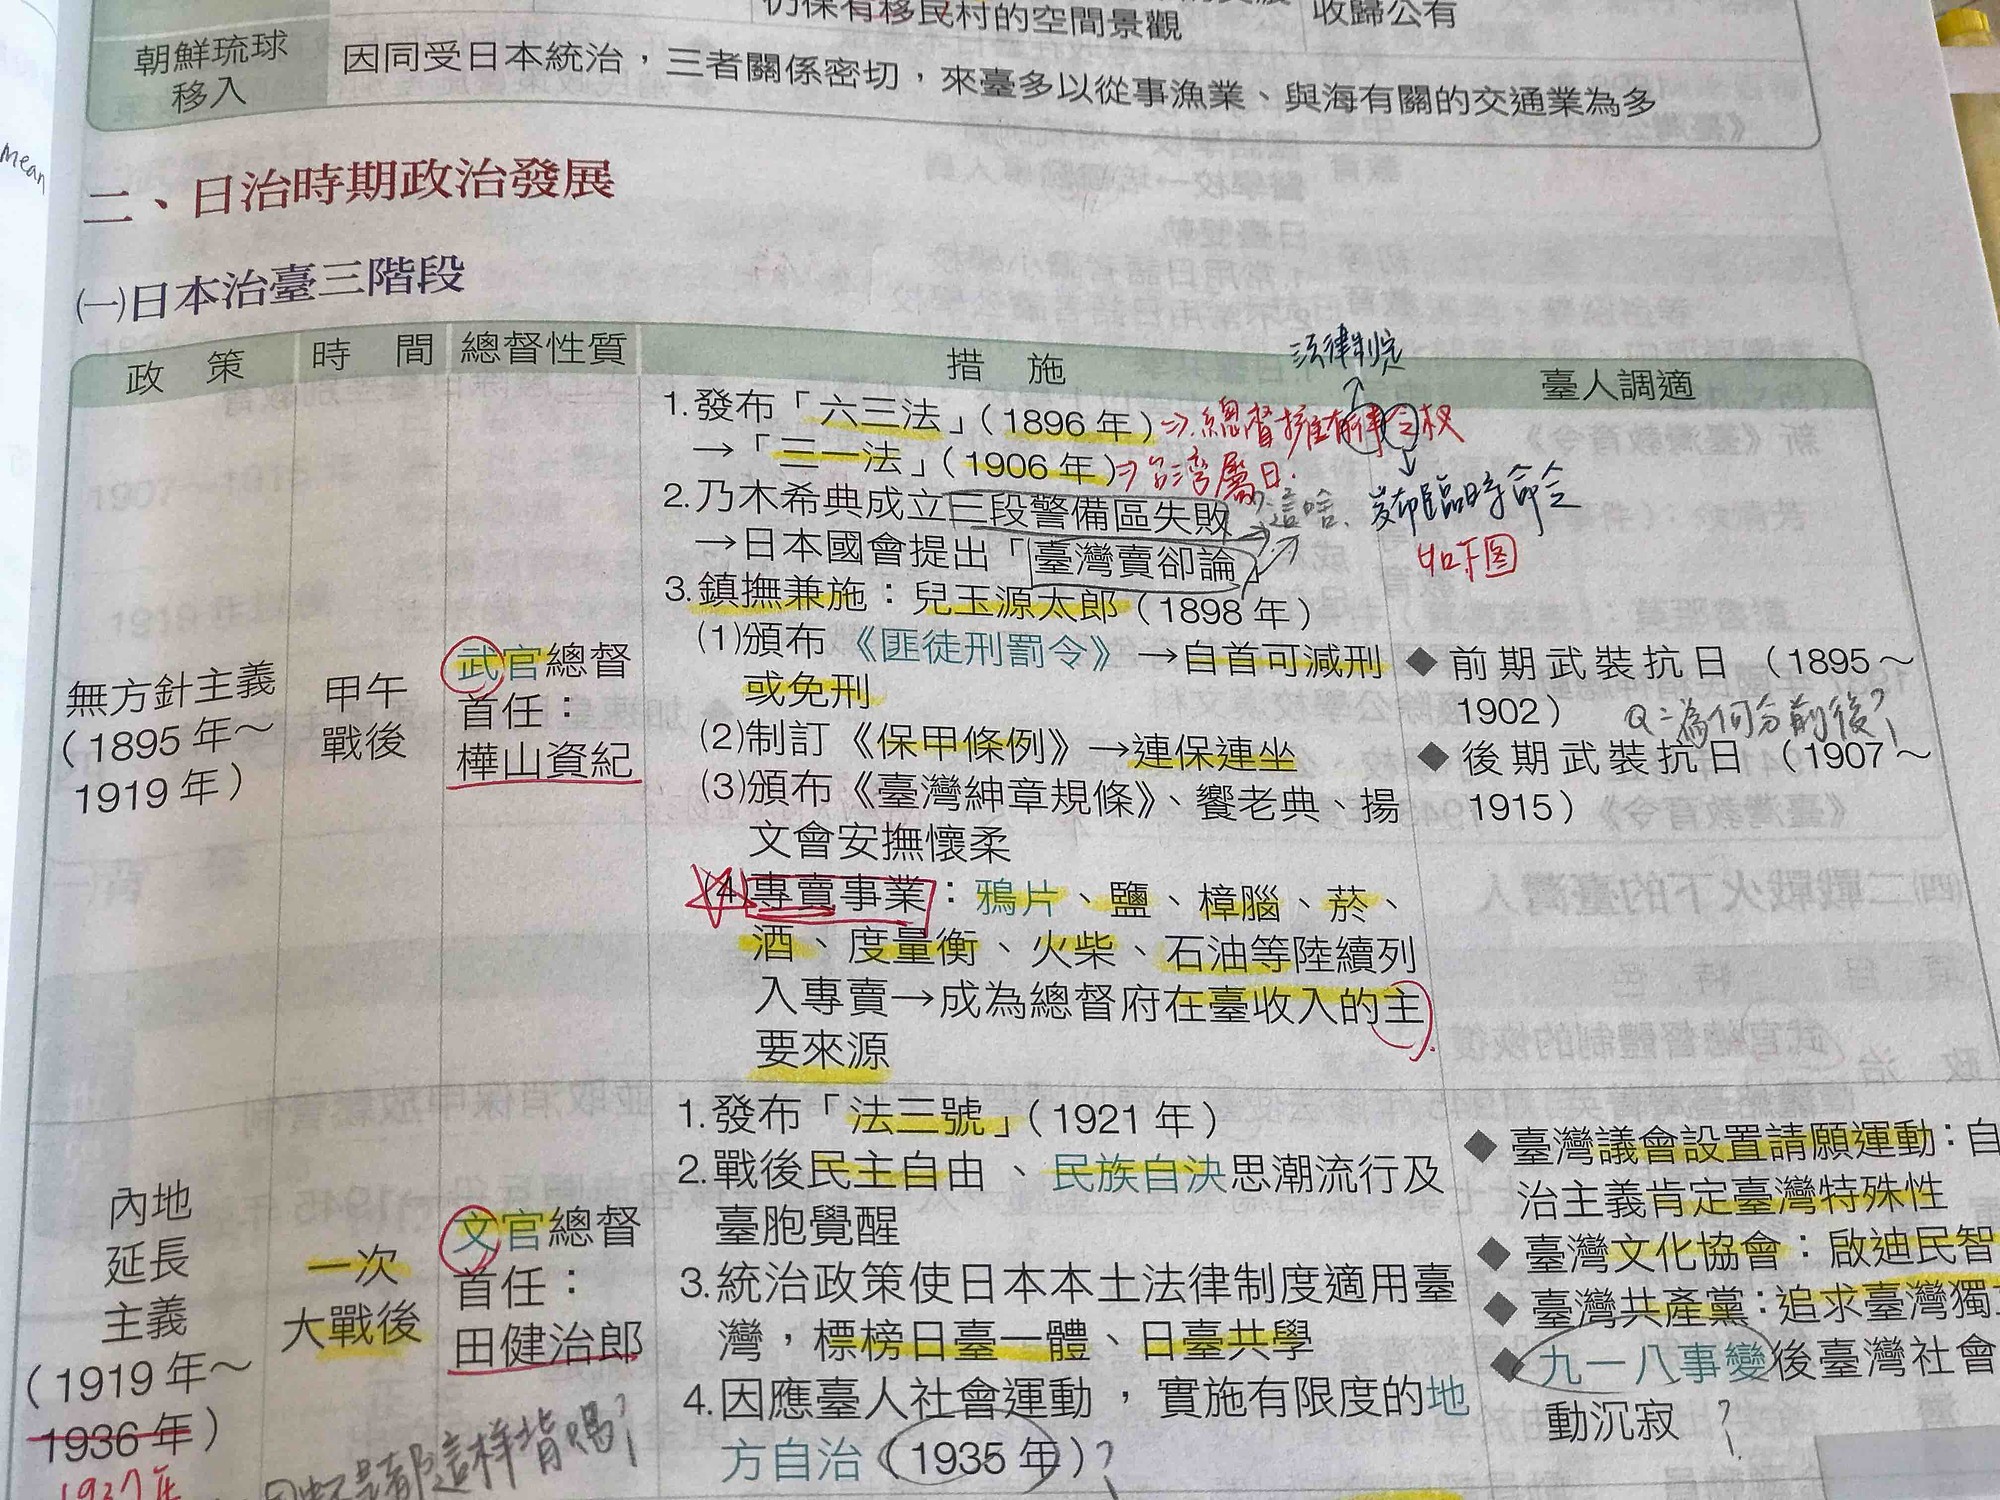 仍保有移民村的空間景觀
收歸公有
朝鮮琉球
移入
因同受日本統治,三者關係密切,來臺多以從事漁業、與海有關的交通業為多
mean
二、日治時期政治發展
㈠日本治臺三階段
政策
時間
總督性質
措施
臺人調適
無方針主義
(1895年~
1919年)
甲午
戰後
武官總督
首任:
樺山資紀
法律制定
1.發布「六三法」(1896年)⇒總督擁有律令权
→「三一法」(1906年)⇒台湾屬日.
2.乃木希典成立三段警備區失敗
→日本國會提出「臺灣賣卻論」
這啥.
发布臨時命令
如下图
3.鎮撫兼施:兒玉源太郎(1898年)
⑴頒布《匪徒刑罰令》→自首可減刑
或免刑
⑵制訂《保甲條例》→連保連坐
⑶頒布《臺灣紳章規條》、饗老典、揚
文會安撫懷柔
⑷專賣事業:鴉片、鹽、樟腦、菸、
酒、度量衡、火柴、石油等陸續列
入專賣→成為總督府在臺收入的主
要來源
◆前期武裝抗日(1895~
1902)
Q:為何分前後?
◆後期武裝抗日(1907~
1915)
內地
延長
主義
(1919年~
1936年)
1937年
一次
大戰後
文官總督
首任:
田健治郎
都這樣背嗎?
1.發布「法三號」(1921年)
2.戰後民主自由、民族自決思潮流行及
臺胞覺醒
3.統治政策使日本本土法律制度適用臺
灣,標榜日臺一體、日臺共學
4.因應臺人社會運動,實施有限度的地
方自治(1935年)?
◆臺灣議會設置請願運動:自
治主義肯定臺灣特殊性
◆臺灣文化協會:啟迪民智
◆臺灣共產黨:追求臺灣獨
◆九一八事變後臺灣社會
動沉寂 ?